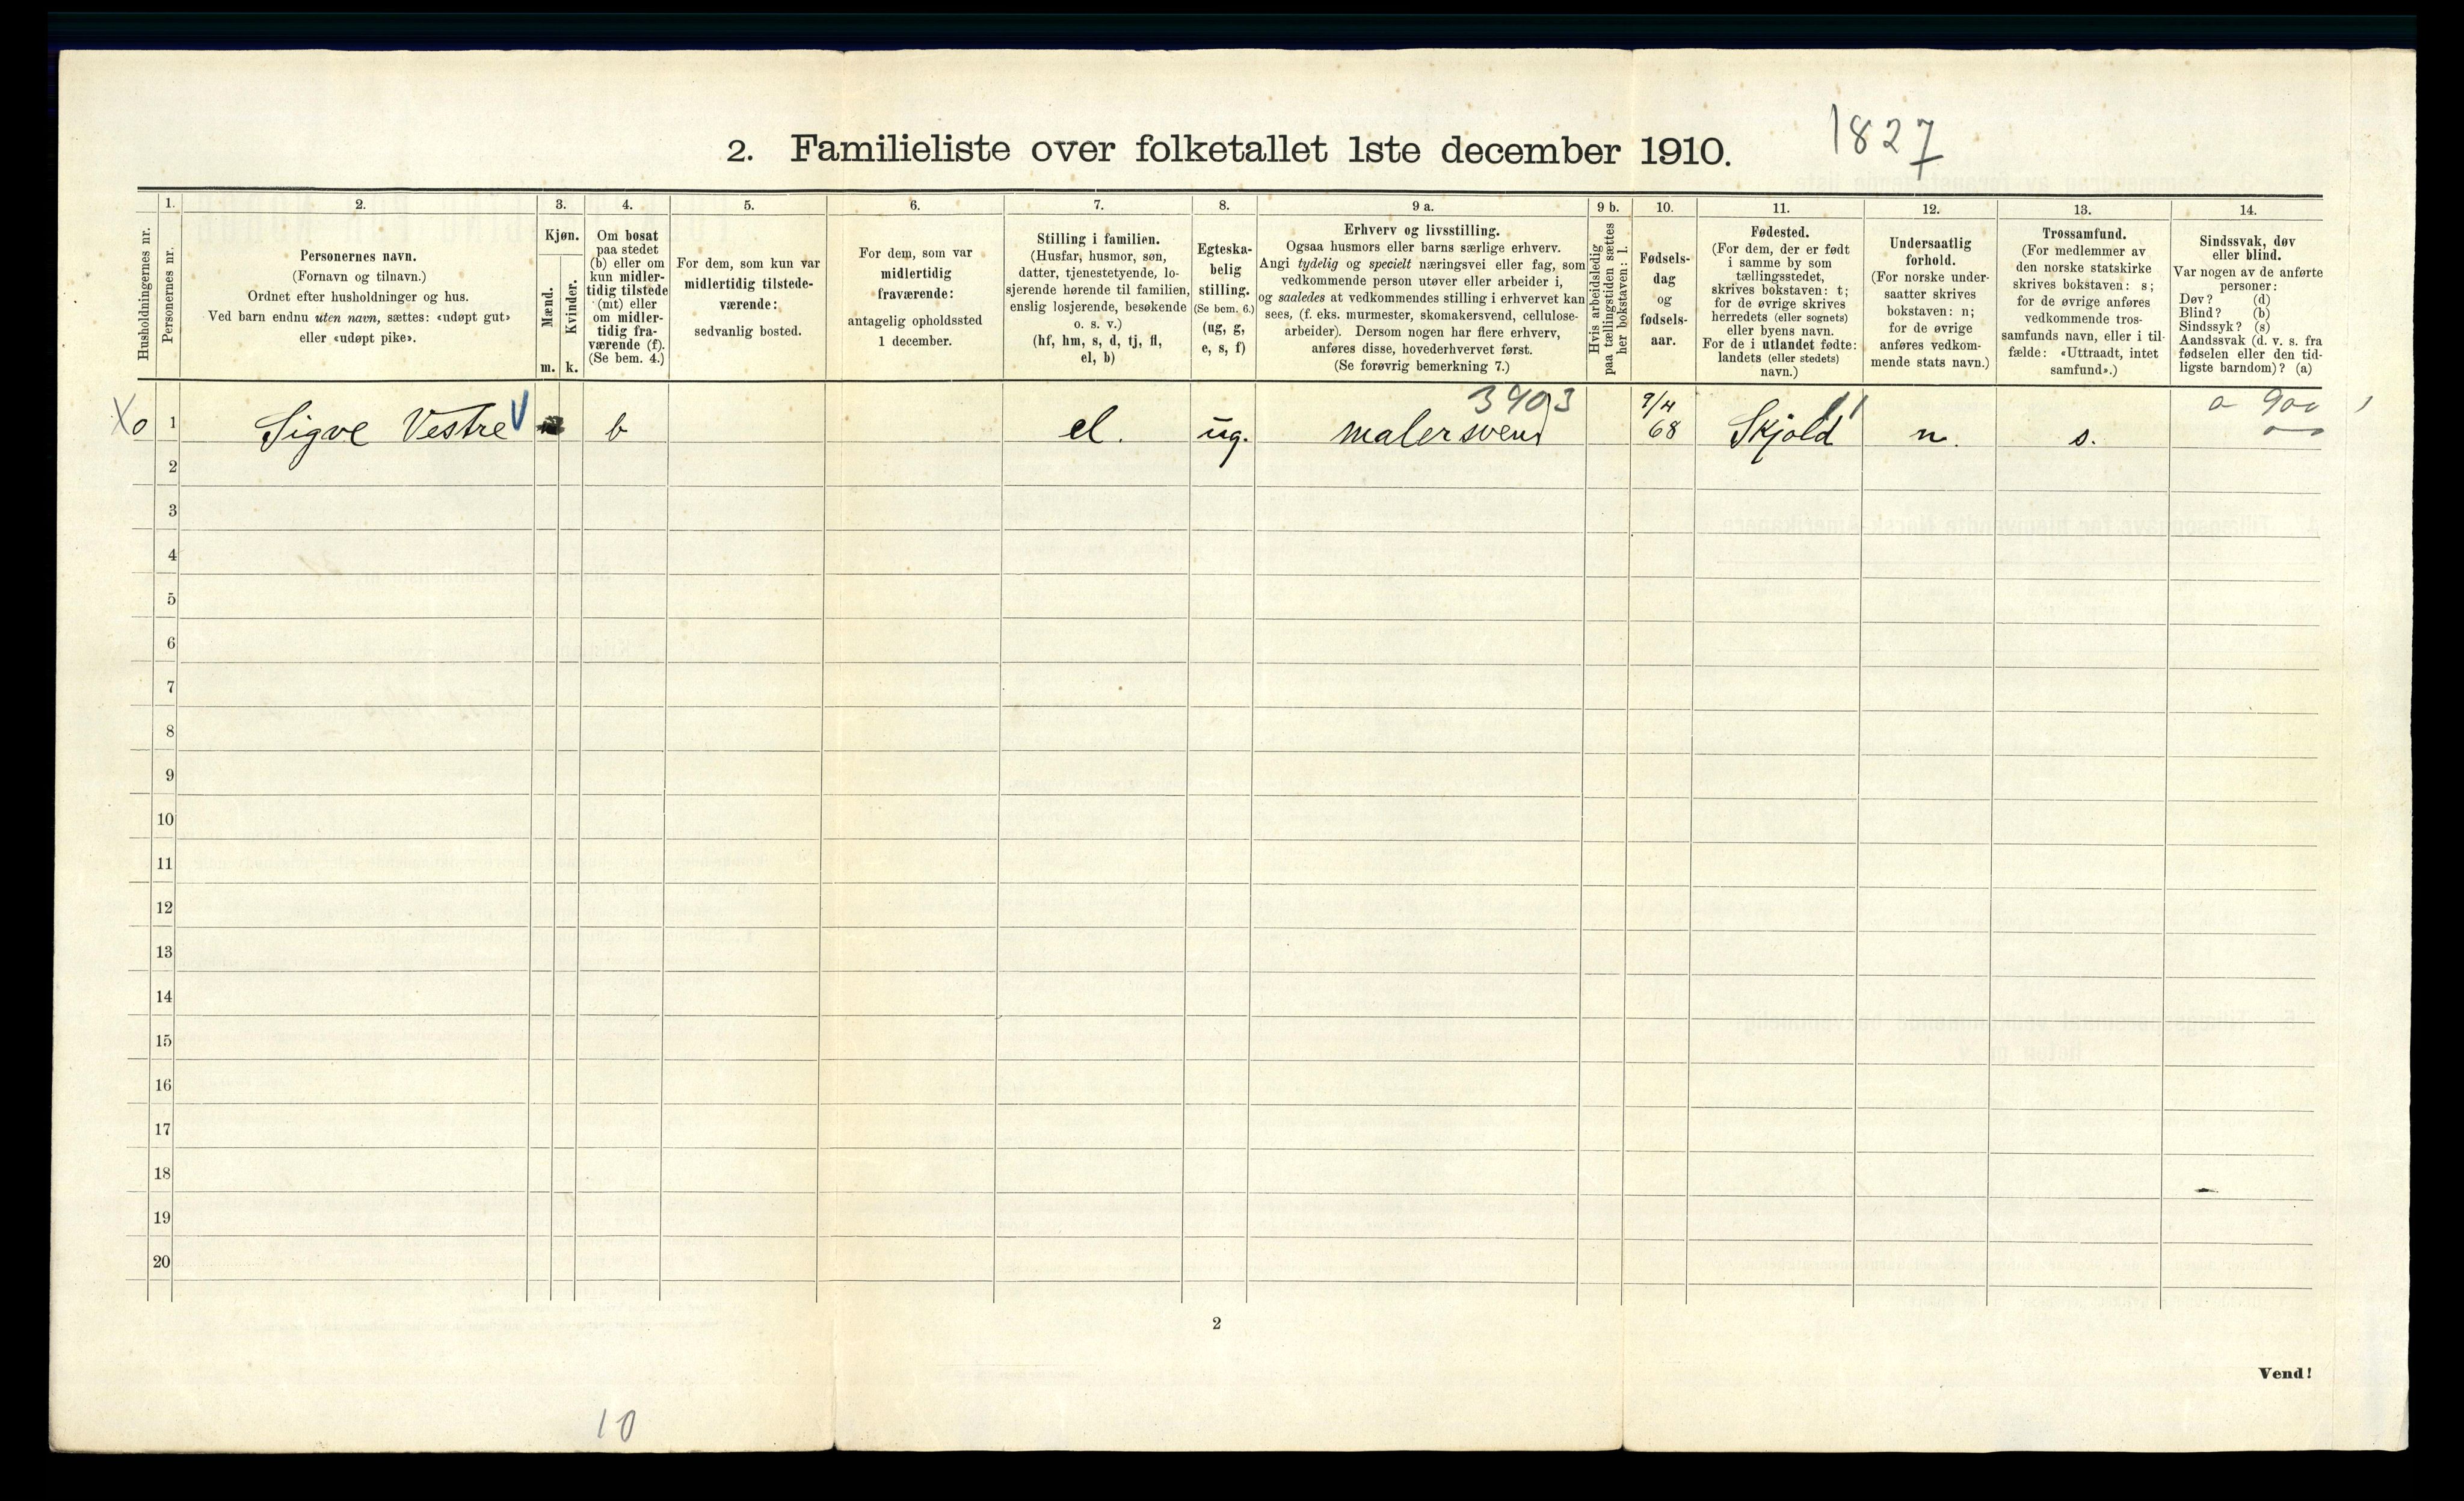 2. Familieliste over folketallet 1ste december 1910.
1827
Husholdningernes nr.
1.
Personernes nr.
2.
Personernes navn.
(Fornavn og tilnavn.)
Ordnet efter husholdninger og hus.
Ved barn endnu uten navn, sættes: «udøpt gut»
eller «udøpt pike».
3.
Kjøn.
Mænd.
Kvinder.
m. k.
4.
Om bosat
paa stedet
(b) eller om
kun midler-
tidig tilstede
(mt) eller
om midler-
tidig fra-
værende (f).
(Se bem. 4.)
5.
For dem, som kun var
midlertidig tilstede-
værende:
sedvanlig bosted.
6.
For dem, som var
midlertidig
fraværende:
antagelig opholdssted
1 december.
7.
Stilling i familien.
(Husfar, husmor, søn,
datter, tjenestetyende, lo-
sjerende hørende til familien,
enslig losjerende, besøkende
o. s. v.)
(hf, hm, s, d, tj, fl,
el, b)
8.
Egteska-
belig
stilling.
(Se bem. 6.)
(ug, g,
e, s, f)
9 a.
Erhverv og livsstilling.
Ogsaa husmors eller barns særlige erhverv.
Angi tydelig og specielt næringsvei eller fag, som
vedkommende person utøver eller arbeider i,
og saaledes at vedkommendes stilling i erhvervet kan
sees, (f. eks. murmester, skomakersvend, cellulose-
arbeider). Dersom nogen har flere erhverv,
anføres disse, hovederhvervet først.
(Se forøvrig bemerkning 7.)
9 b.
Hvis arbeidsledig
paa tællingstiden sættes
her bokstaven: l.
10.
Fødsels-
dag
og
fødsels-
aar.
11.
Fødested.
(For dem, der er født
i samme by som
tællingsstedet,
skrives bokstaven: t;
for de øvrige skrives
herredets (eller sognets)
eller byens navn.
For de i utlandet fødte:
landets (eller stedets)
navn.)
12.
Undersaatlig
forhold.
(For norske under-
saatter skrives
bokstaven: n;
for de øvrige
anføres vedkom-
mende stats navn.)
13.
Trossamfund.
(For medlemmer av
den norske statskirke
skrives bokstaven: s;
for de øvrige anføres
vedkommende tros-
samfunds navn, eller i til-
fælde: «Uttraadt, intet
samfund».)
14.
Sindssvak, døv
eller blind.
Var nogen av de anførte
personer:
Døv? (d)
Blind? (b)
Sindssyk? (s)
Aandssvak (d. v. s. fra
fødselen eller den tid-
ligste barndom)? (a)
3403
9/4
Xo 1 Sigve Vestre b el. ug. malersvend 68 Skjold n. s.
2
3
4
5
6
7
8
9
10
11
12
13
14
15
16
17
18
19
20
2
Vend!
10